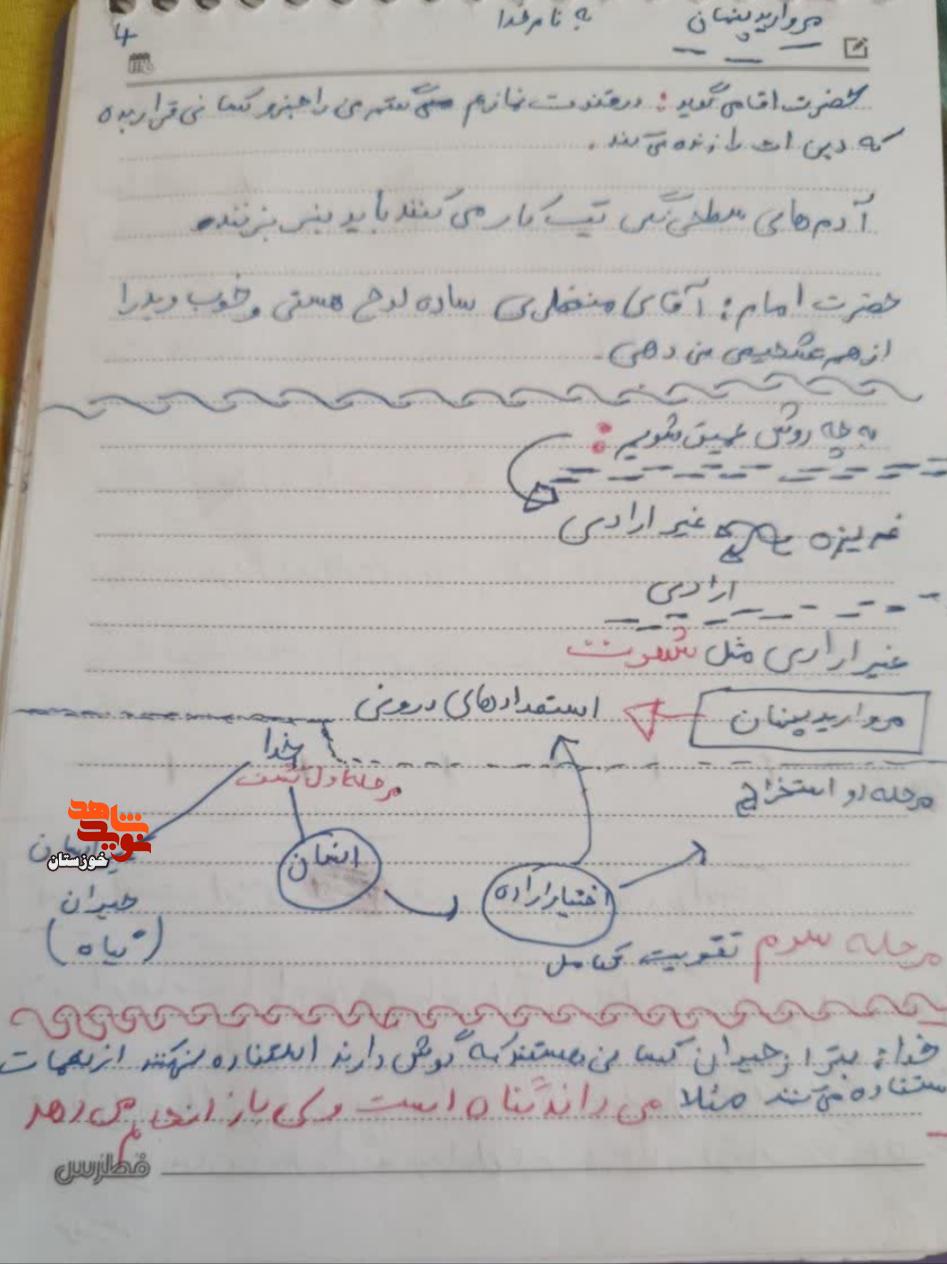 مروارید پنهان
به نام خدا
4
حضرت اقا می گوید: در قنوت نمازم می گفتم من را جزو کسانی قرار بده
که دین ات را زنده می کند.
آدم های سطحی نگر کار می کنند باید بنزنند
حضرت امام: آقای منتظری ساده لوح هستی و خوب و بد را
از هم تشخیص نمی دهی.
به چه روش عمیق شویم:
غریزه غیر ارادی
ارادی
غیر ارادی مثل شهوت
مروارید پنهان
استعدادهای درونی
خدا
مرحله اول کشف
مرحله دو استخراج
انسان
اختیار اراده
نوید شاهد
خوزستان
حیوان
(گیاه)
مرحله سوم تقویت تکامل
خدا: بدتر از حیوان کسانی هستند که گوش دارند استفاده نمی کنند از
استفاده نمی کنند مثلا می داند گناه است ولی باز انجام می دهد
فطرس